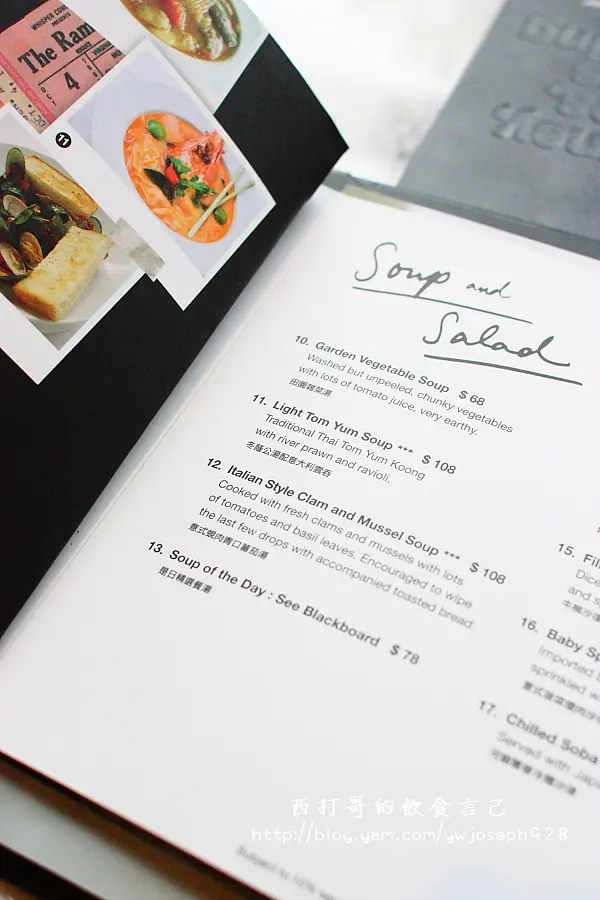 WHISPER CON
PRESENTS
The Ram
4
11
Soup and
Salad
10. Garden Vegetable Soup $ 68
Washed but unpeeled, chunky vegetables
with lots of tomato juice, very earthy.
田園雜菜湯
11. Light Tom Yum Soup *** $ 108
Traditional Thai Tom Yum Koong
with river prawn and ravioli.
冬蔭公湯配意大利雲吞
12. Italian Style Clam and Mussel Soup *** $ 108
Cooked with fresh clams and mussels with lots
of tomatoes and basil leaves. Encouraged to wipe
the last few drops with accompanied toasted bread.
意式蜆肉青口蕃茄湯
13. Soup of the Day : See Blackboard $ 78
是日精選餐湯
15. Fil
Dice
and s
牛柳沙律
16. Baby Sp
Imported b
sprinkled w
17. Chilled Soba
Served with Japa
西打哥的飲食言己
http://blog.yam.com/ywjoseph928
Subject to 10% se